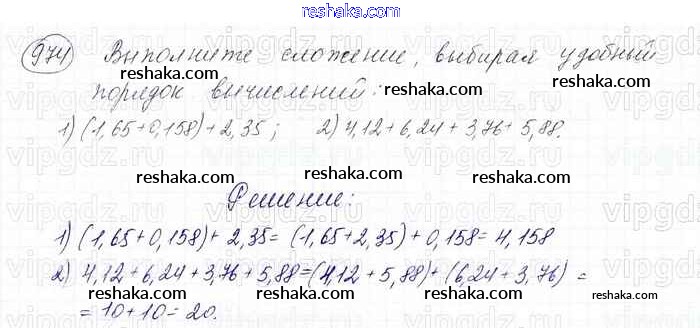 reshaka.com
974 Выполните сложение, выбирая удобный
reshaka.com reshaka.com
порядок вычислений:
1) (1,65+0,158)+2,35; 2) 4,12+6,24+3,76+5,88.
reshaka.com reshaka.com
Решение:
1) (1,65+0,158)+2,35=(1,65+2,35)+0,158=4,158
reshaka.com reshaka.com
2) 4,12+6,24+3,76+5,88=(4,12+5,88)+(6,24+3,76)=
reshaka.com reshaka.com reshaka.com
=10+10=20.
reshaka.com